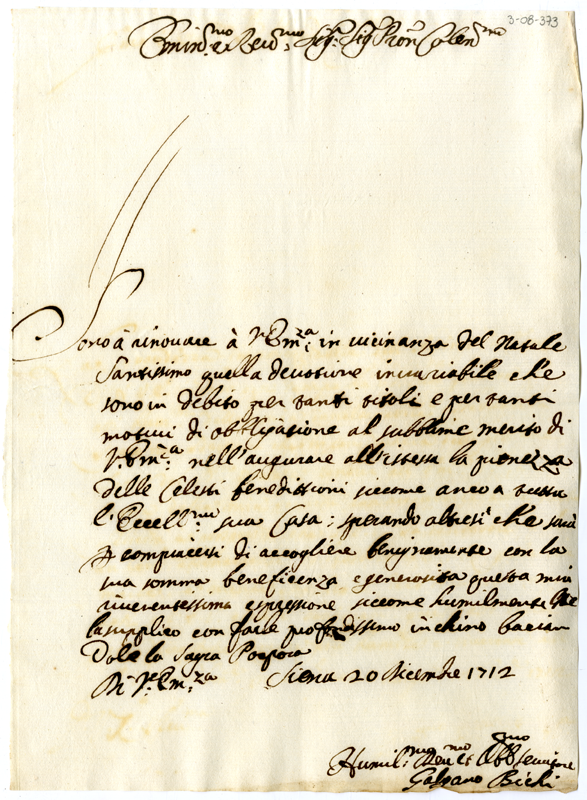 3-08-373
Emin.mo e Rev.mo Sig.r Sig.r Pron Colen.mo
Sono à rinovare à V. Em.za in vicinanza del Natale
Santissimo quella devotione invariabile che
sono in debito per tanti titoli e per tanti
motivi di obbligatione al sublime merito di
V. Em.za nell'augurare all'istessa la pienezza
delle Celesti benedittioni siccome anco a tutta
l'Eccell.ma sua Casa; sperando altresi che sarà
p compiacersi di accogliere benignamente con la
sua somma beneficenza e generosità questa mia
riverentissima espressione siccome humilmente
la supplico con fare profondissimo inchino bacian
Dole la Sagra Porpora
Di V. Em.za Siena 20 Dicembre 1712
Humil.mo Dev.mo et Obb.mo servitore
Galgano Bichi